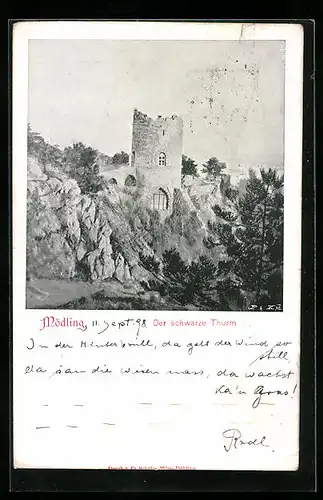 Mödling, 11. Sept. 98 Der schwarze Thurm
In der Hinterbrühl, da geht der Wind so
still
da san die Wiesen nass, da wachst
ka'n Gras!
Radl